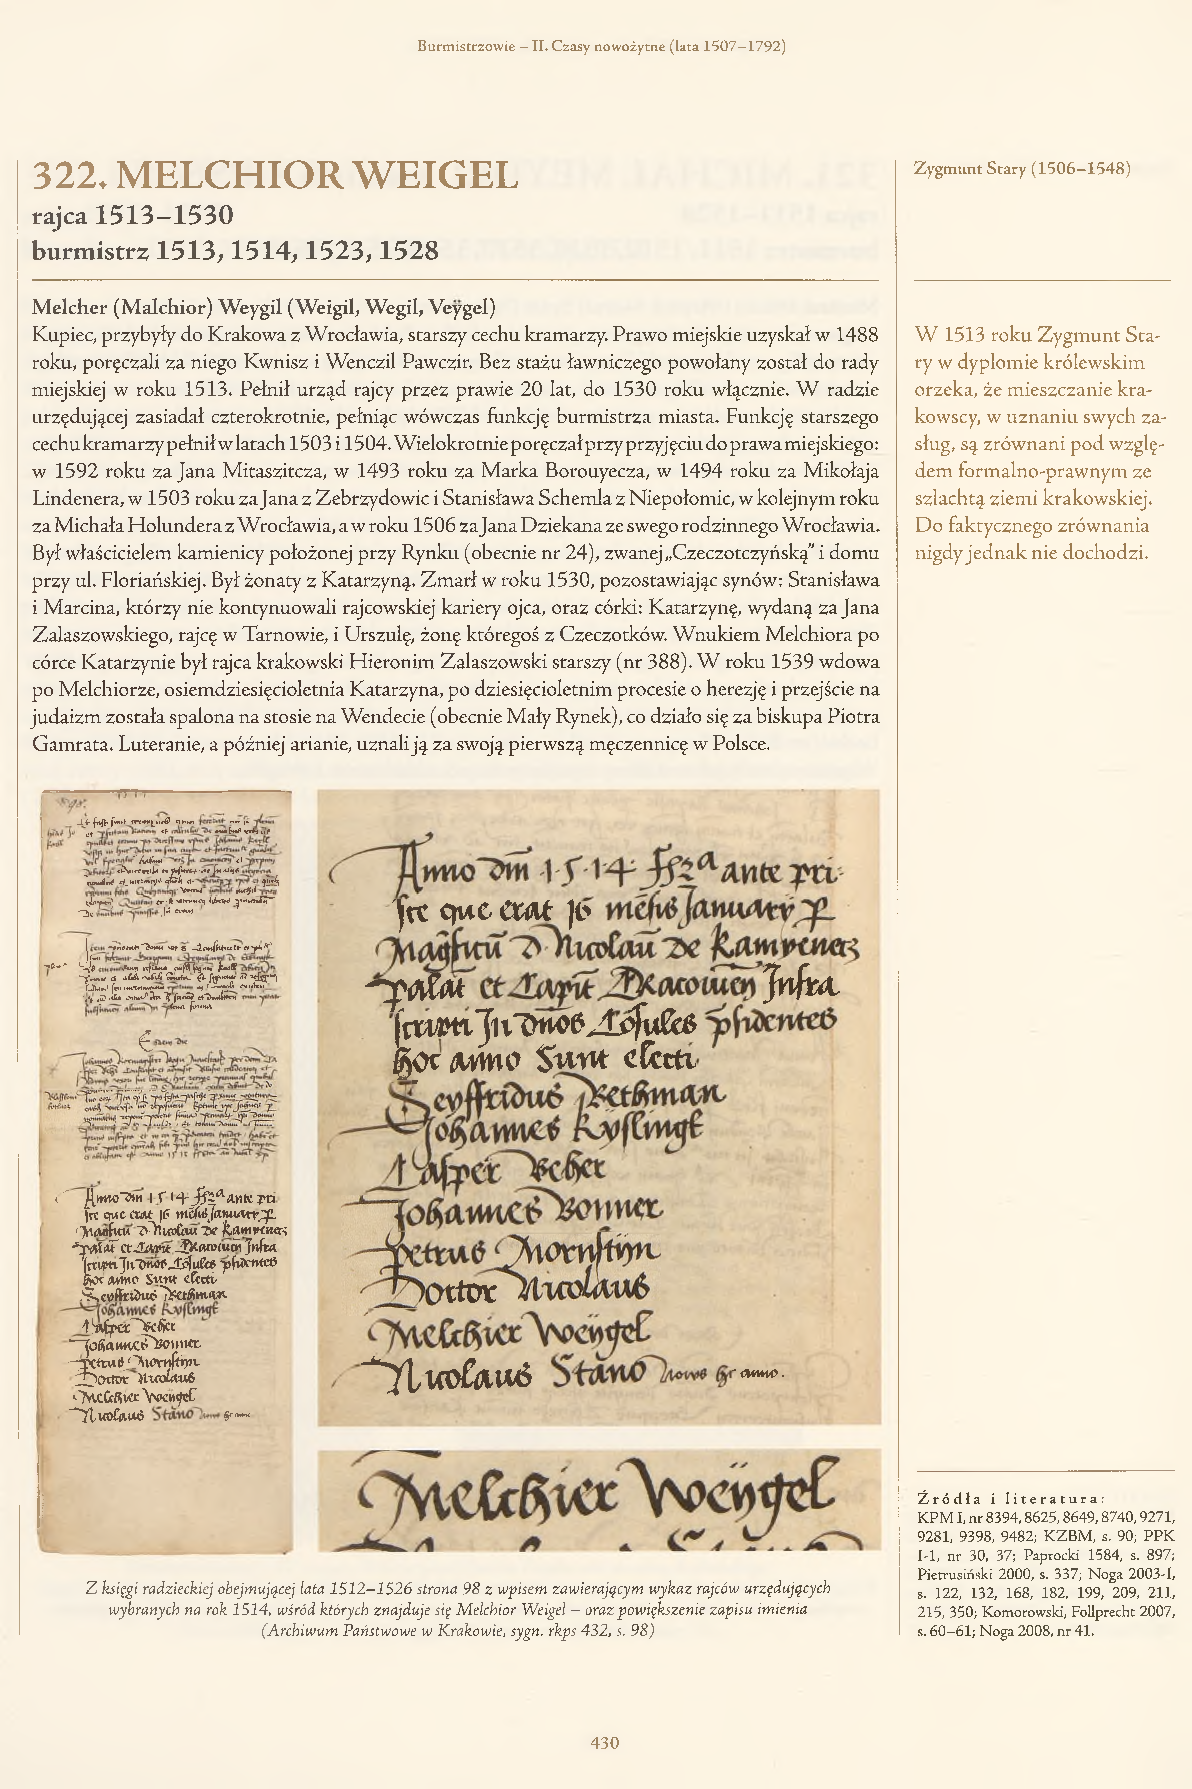 Burmistrzowie – II. Czasy nowożytne (lata 1507–1792)
322. MELCHIOR WEIGEL
rajca 1513–1530
burmistrz 1513, 1514, 1523, 1528
Melcher (Malchior) Weygil (Weigil, Wegil, Veÿgel)
Kupiec, przybyły do Krakowa z Wrocławia, starszy cechu kramarzy. Prawo miejskie uzyskał w 1488
roku, poręczali za niego Kwnisz i Wenczil Pawczir. Bez stażu ławniczego powołany został do rady
miejskiej w roku 1513. Pełnił urząd rajcy przez prawie 20 lat, do 1530 roku włącznie. W radzie
urzędującej zasiadał czterokrotnie, pełniąc wówczas funkcję burmistrza miasta. Funkcję starszego
cechu kramarzy pełnił w latach 1503 i 1504. Wielokrotnie poręczał przy przyjęciu do prawa miejskiego:
w 1592 roku za Jana Mitaszitcza, w 1493 roku za Marka Borouyecza, w 1494 roku za Mikołaja
Lindenera, w 1503 roku za Jana z Zebrzydowic i Stanisława Schemla z Niepołomic, w kolejnym roku
za Michała Holundera z Wrocławia, a w roku 1506 za Jana Dziekana ze swego rodzinnego Wrocławia.
Był właścicielem kamienicy położonej przy Rynku (obecnie nr 24), zwanej „Czeczotczyńską” i domu
przy ul. Floriańskiej. Był żonaty z Katarzyną. Zmarł w roku 1530, pozostawiając synów: Stanisława
i Marcina, którzy nie kontynuowali rajcowskiej kariery ojca, oraz córki: Katarzynę, wydaną za Jana
Zalaszowskiego, rajcę w Tarnowie, i Urszulę, żonę któregoś z Czeczotków. Wnukiem Melchiora po
córce Katarzynie był rajca krakowski Hieronim Zalaszowski starszy (nr 388). W roku 1539 wdowa
po Melchiorze, osiemdziesięcioletnia Katarzyna, po dziesięcioletnim procesie o herezję i przejście na
judaizm została spalona na stosie na Wendecie (obecnie Mały Rynek), co działo się za biskupa Piotra
Gamrata. Luteranie, a później arianie, uznali ją za swoją pierwszą męczennicę w Polsce.
Zygmunt Stary (1506–1548)
W 1513 roku Zygmunt Sta-
ry w dyplomie królewskim
orzeka, że mieszczanie kra-
kowscy, w uznaniu swych za-
sług, są zrównani pod wzglę-
dem formalno-prawnym ze
szlachtą ziemi krakowskiej.
Do faktycznego zrównania
nigdy jednak nie dochodzi.
Anno dm 1514 ante pri
que erat 16 mēsis January
Magficū D Nicolaū de Kampenetz
palat et Capit Cracouien Infra
scripti In dnos Cōsules psidentes
hoc anno Sunt electi
Seyffridus Bethman
Johannes Kyslingk
Casper Beher
Johannes Bonner
Petrus Mornstijn
Doctor Nicolaus
Melchier Weÿgel
Nicolaus Stano nouus hoc anno.
Melchier Weÿgel
Z księgi radzieckiej obejmującej lata 1512–1526 strona 98 z wpisem zawierającym wykaz rajców urzędujących
wybranych na rok 1514, wśród których znajduje się Melchior Weigel – oraz powiększenie zapisu imienia
(Archiwum Państwowe w Krakowie, sygn. rkps 432, s. 98)
Źródła i literatura:
KPM I, nr 8394, 8625, 8649, 8740, 9271,
9281, 9398, 9482; KZBM, s. 90; PPK
I-1, nr 30, 37; Paprocki 1584, s. 897;
Pietrusiński 2000, s. 337; Noga 2003-I,
s. 122, 132, 168, 182, 199, 209, 211,
215, 350; Komorowski, Follprecht 2007,
s. 60–61; Noga 2008, nr 41.
430